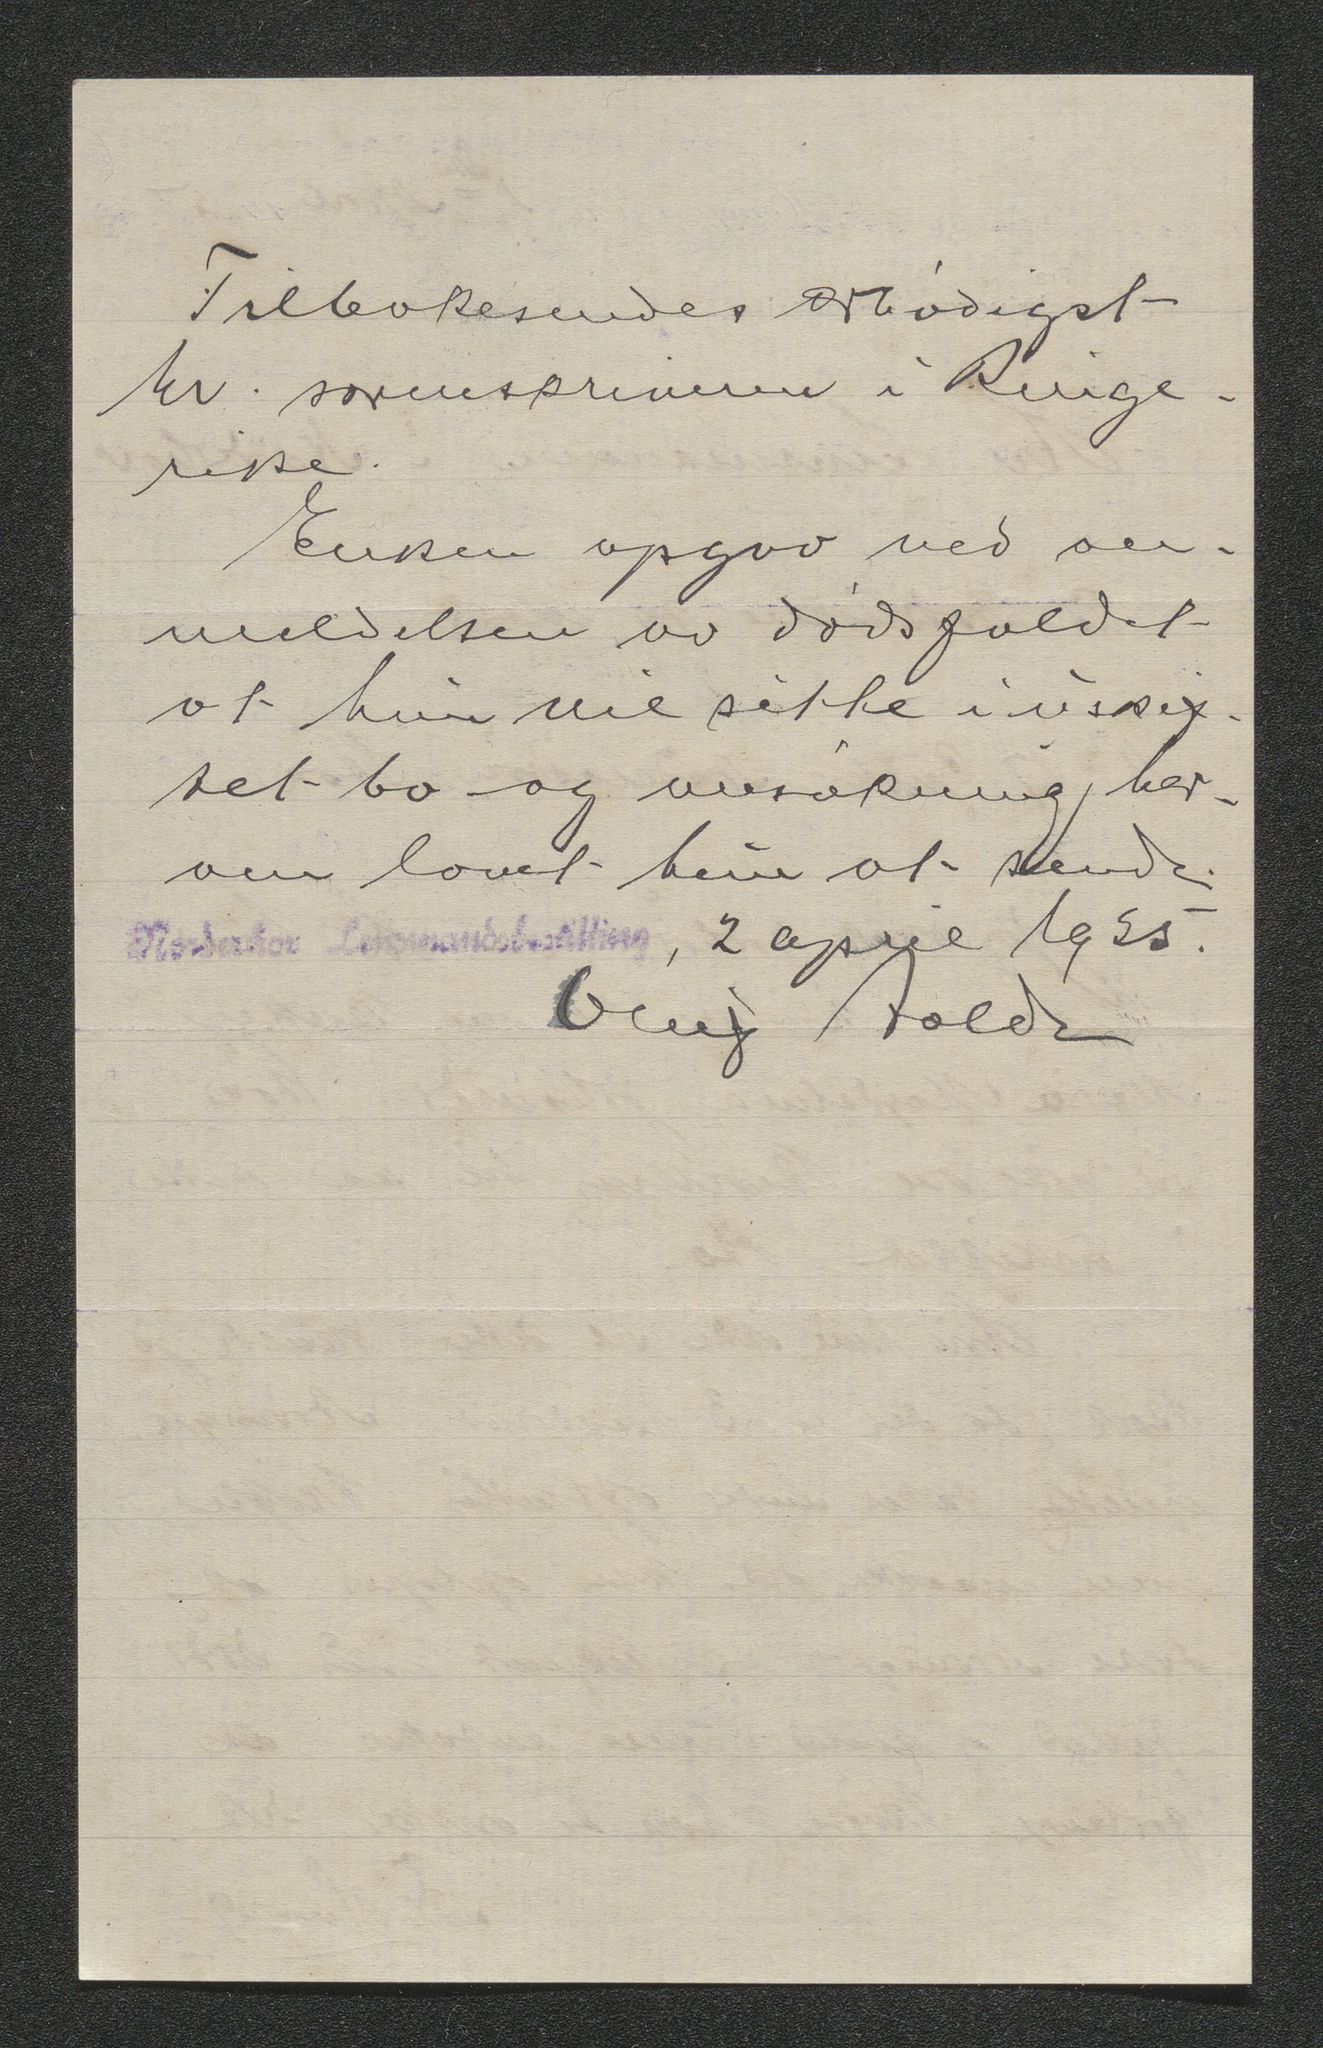 Tilbakesendes ærbødigst
hr. sorenskriveren i Ringe-
rike.
Enken opgav ved an-
meldelsen av dødsfaldet
at hun vil sitte i uskif-
tet bo og ansøkning her-
om lovet hun at sende.
Norderhov Lensmandsbestilling, 2 april 1925.